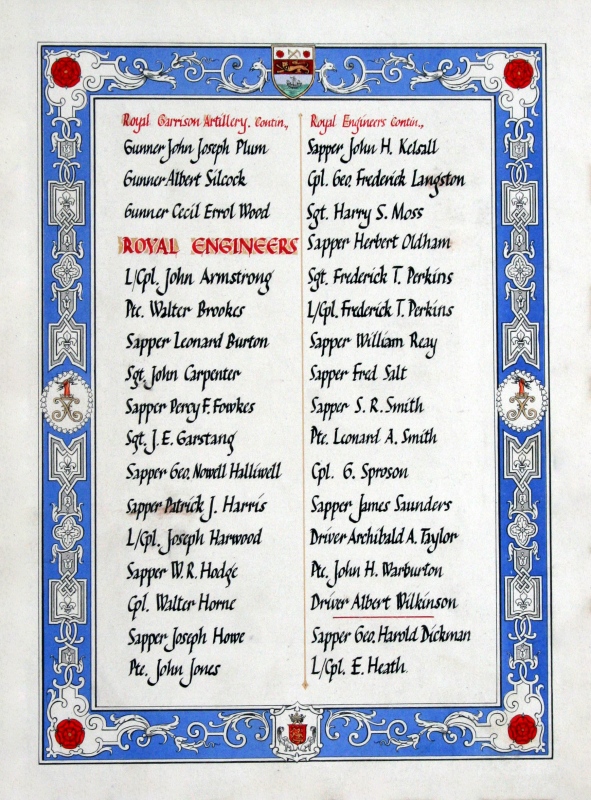 Royal Garrison Artillery. Contin.,
Gunner John Joseph Plum
Gunner Albert Silcock
Gunner Cecil Errol Wood
ROYAL ENGINEERS
L/Cpl. John Armstrong
Pte. Walter Brookes
Sapper Leonard Burton
Sgt. John Carpenter
Sapper Percy F. Fowkes
Sgt. J. E. Garstang
Sapper Geo. Nowell Halliwell
Sapper Patrick J. Harris
L/Cpl. Joseph Harwood
Sapper W. R. Hodge
Cpl. Walter Horne
Sapper Joseph Howe
Pte. John Jones
Royal Engineers Contin.,
Sapper John H. Kelsall
Cpl. Geo. Frederick Langston
Sgt. Harry S. Moss
Sapper Herbert Oldham
Sgt. Frederick T. Perkins
L/Cpl. Frederick T. Perkins
Sapper William Reay
Sapper Fred Salt
Sapper S. R. Smith
Pte. Leonard A. Smith
Cpl. G. Sproson
Sapper James Saunders
Driver Archibald A. Taylor
Pte. John H. Warburton
Driver Albert Wilkinson
Sapper Geo. Harold Dickman
L/Cpl. E. Heath